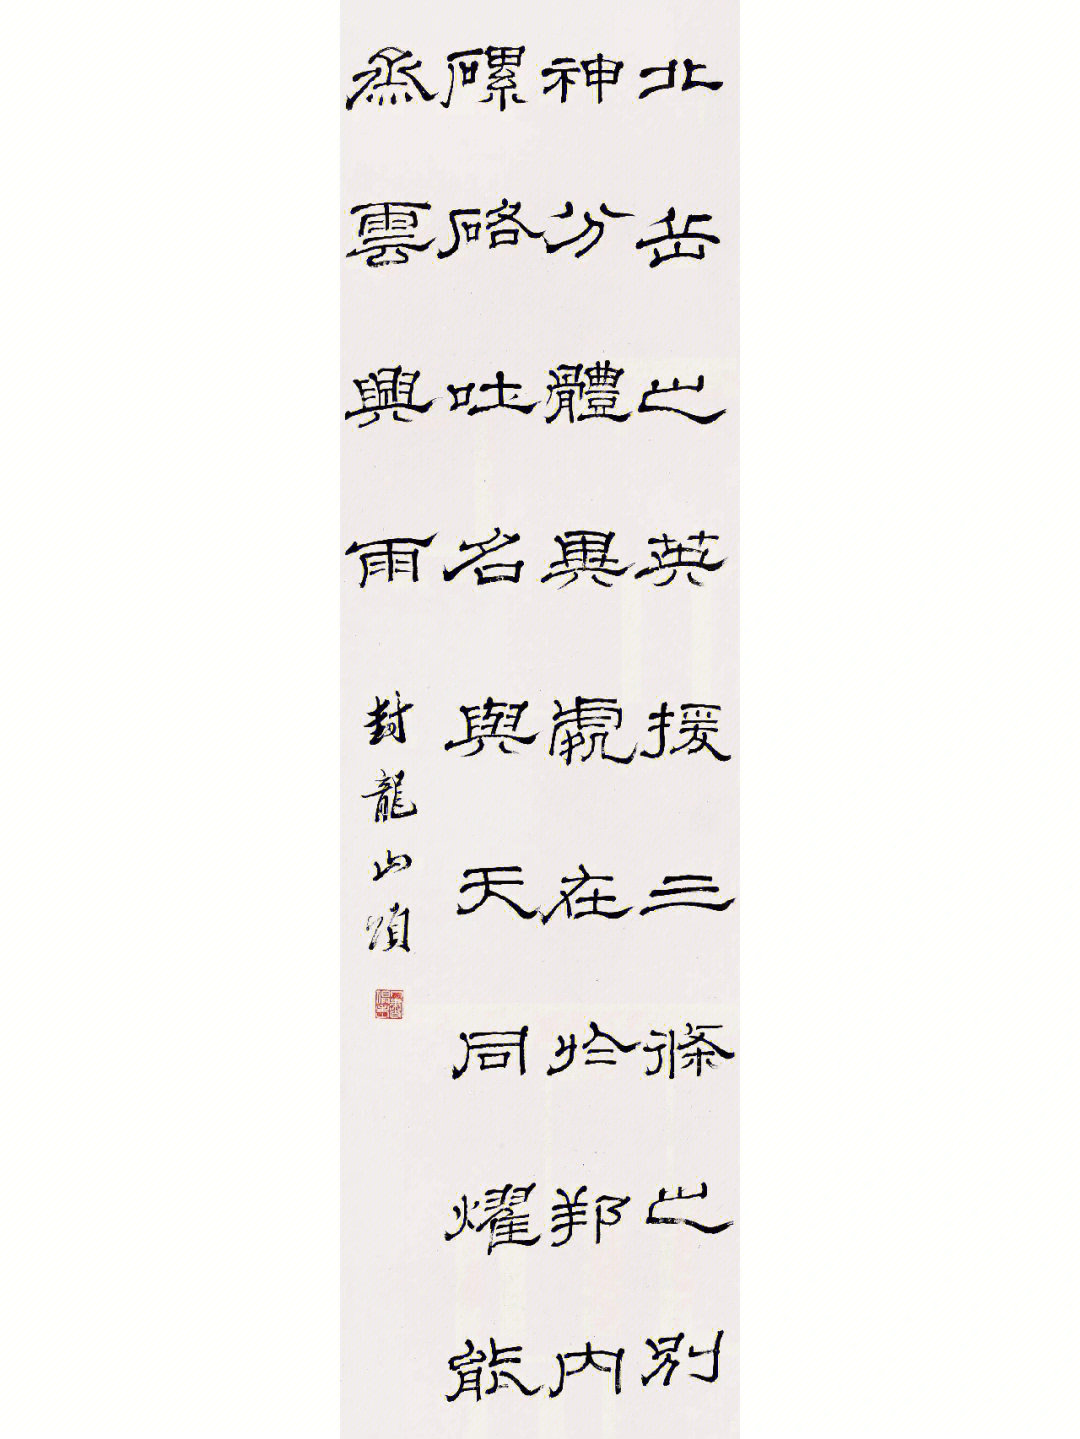 北岳之英援三條之別
神分體異處在於邦內
磥硌吐名與天同燿能
烝雲興雨
封龍山頌